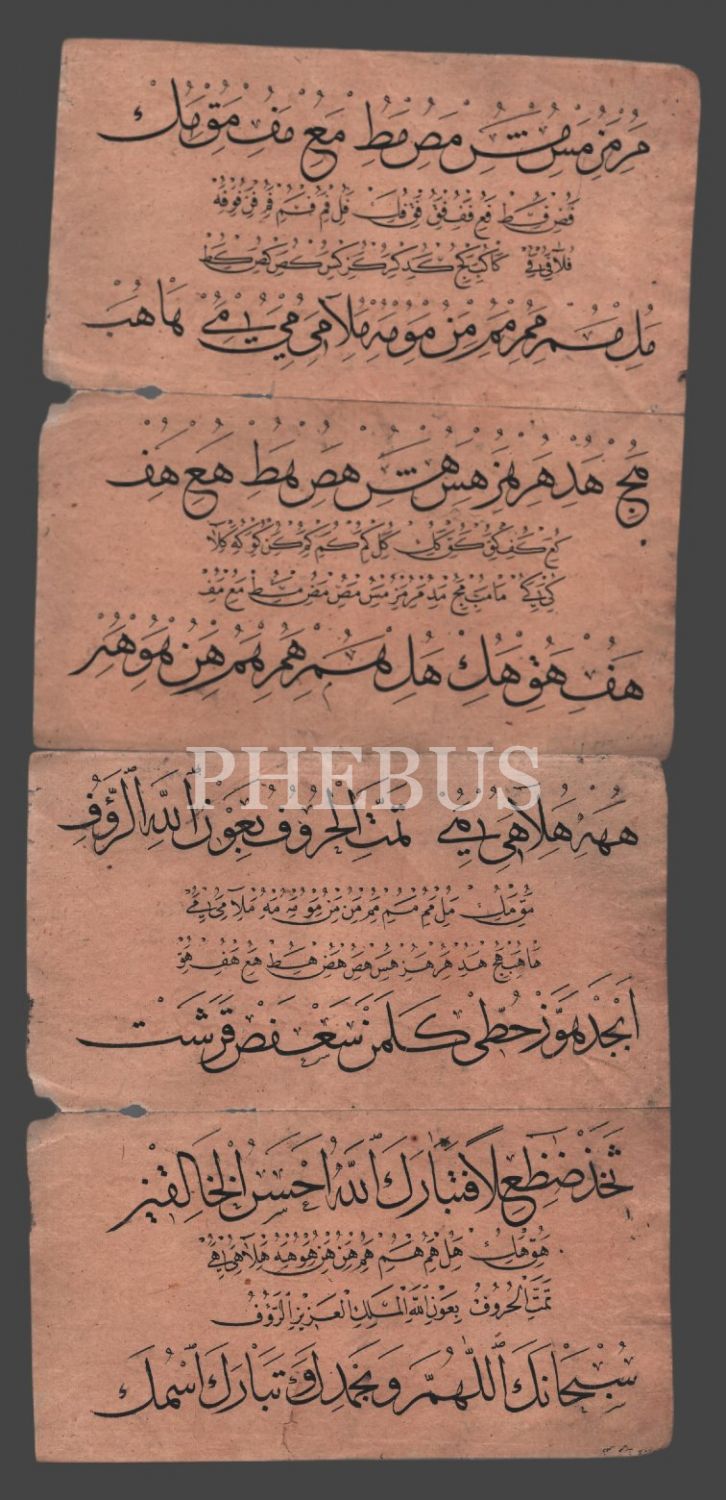 مر مز مس مش مص مط مع مف مق مك
فض فط فع فف فق فك فل فم فن فو فه
فلا فى فے كا كب كج كد كر كز كس كص كض كط
مل مم مم مم من مو مه ملا مى مے ها هب
هج هد هر هز هس هش هص هط هع هف
كع كف كق كك كل كم كم كن كو كه كلا
كى كے ما مب مج مد مر مز مس مص مض مط مع مف
هف هق هك هل هم هم هم هن هو هه
PHEBUS
هه هلا هى هے تمت الحروف بعون الله الرؤف
مق مك مل مم مم مم من من مو مه مه ملا مى مے
ها هب هج هد هر هز هس هص هض هط هع هف هق
اَبْجَدْ هَوَّزْ حُطِّى كَلَمَنْ سَعَفَصْ قَرَشَتْ
ثَخَذْ ضَظِغْ لا فَتَبَارَكَ اللّٰهُ اَحْسَنُ الْخَالِقِينَ
هق هك هل هم هم هم هن هن هو هه هلا هى هے
تَمَّتِ الْحُرُوفُ بِعَوْنِ اللّٰهِ الْمَلِكِ الْعَزِيزِ الرَّؤُفُ
سُبْحَانَكَ اللّٰهُمَّ وَبِحَمْدِكَ وَتَبَارَكَ اسْمُكَ